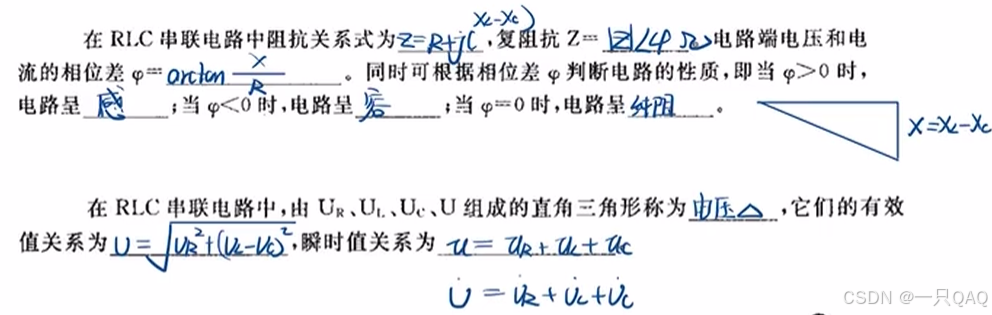 X_L-X_C)
在 RLC 串联电路中阻抗关系式为 Z=R+j( ,复阻抗 Z= |Z|∠φ Ω 电路端电压和电
流的相位差 φ= arctan X/R 。同时可根据相位差 φ 判断电路的性质,即当 φ>0 时,
电路呈 感 ;当 φ<0 时,电路呈 容 ;当 φ=0 时,电路呈 纯阻 。
X=X_L-X_C
在 RLC 串联电路中,由 U_R、U_L、U_C、U 组成的直角三角形称为 电压△ ,它们的有效
值关系为 U=√U_R²+(U_L-U_C)² ,瞬时值关系为 u=u_R+u_L+u_C
U̇=U̇_R+U̇_L+U̇_C
CSDN @一只QAQ